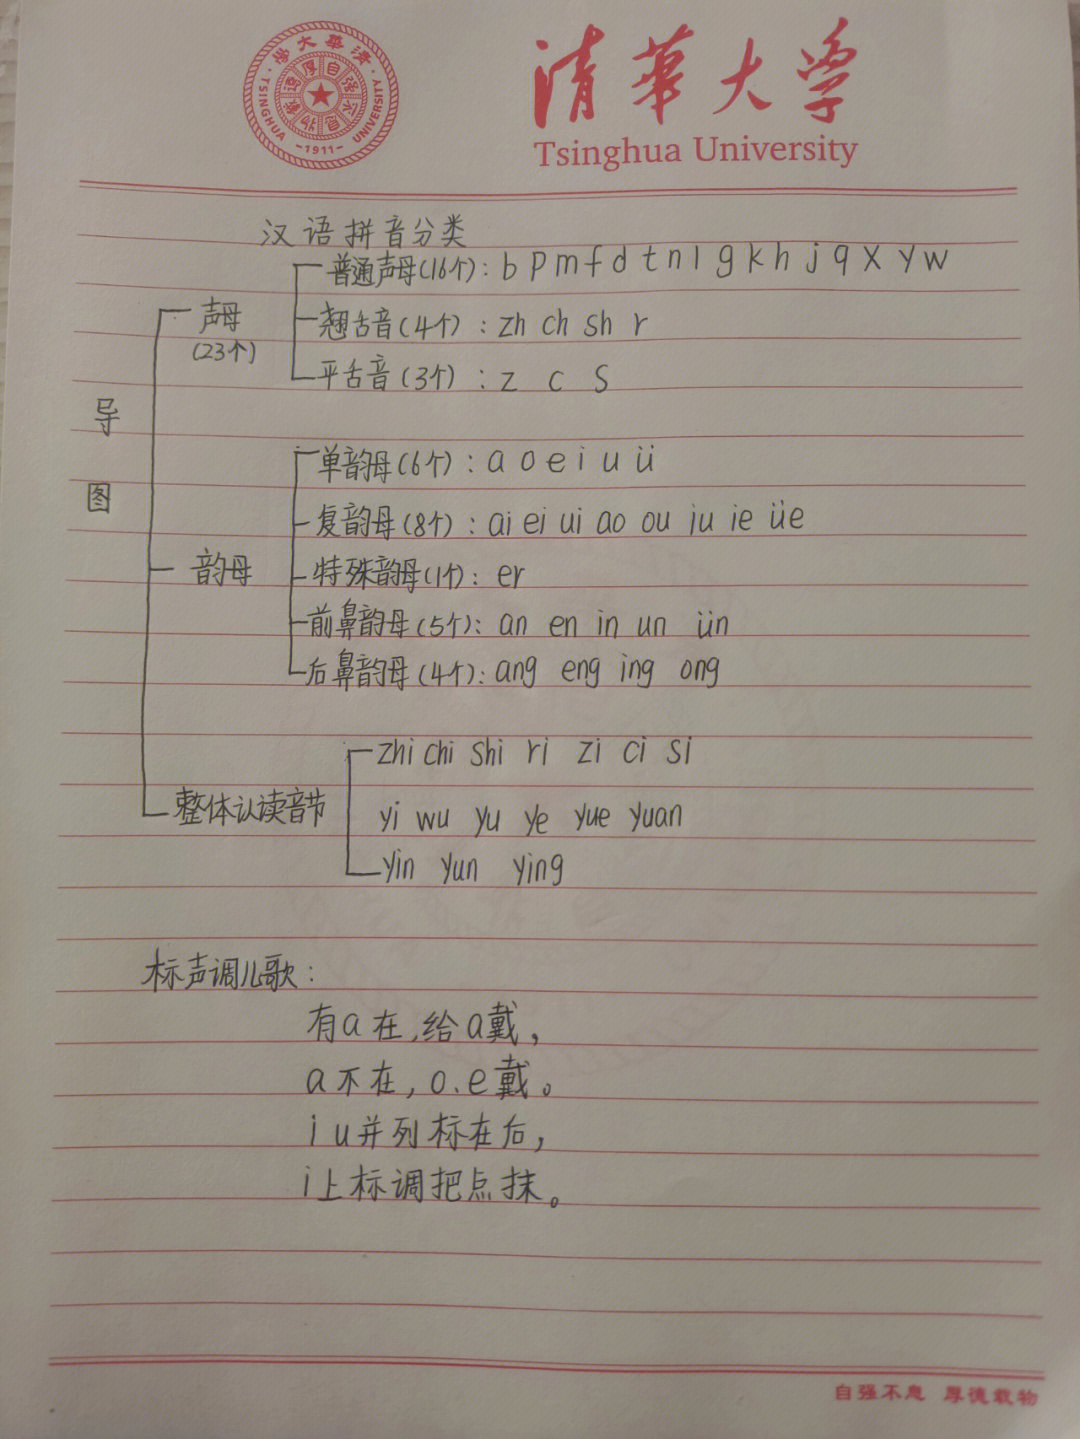 清華大学
Tsinghua University
學大華清
TSINGHUA UNIVERSITY
-1911-
汉语拼音分类
普通声母(16个): b p m f d t n l g k h j q x y w
声母
(23个)
翘舌音(4个): zh ch sh r
平舌音(3个): z c s
导
图
单韵母(6个): a o e i u ü
复韵母(8个): ai ei ui ao ou iu ie üe
韵母
特殊韵母(1个): er
前鼻韵母(5个): an en in un ün
后鼻韵母(4个): ang eng ing ong
zhi chi shi ri zi ci si
整体认读音节
yi wu yu ye yue yuan
yin yun ying
标声调儿歌:
有a在,给a戴,
a不在,o.e戴。
i u并列标在后,
i上标调把点抹。
自强不息 厚德载物